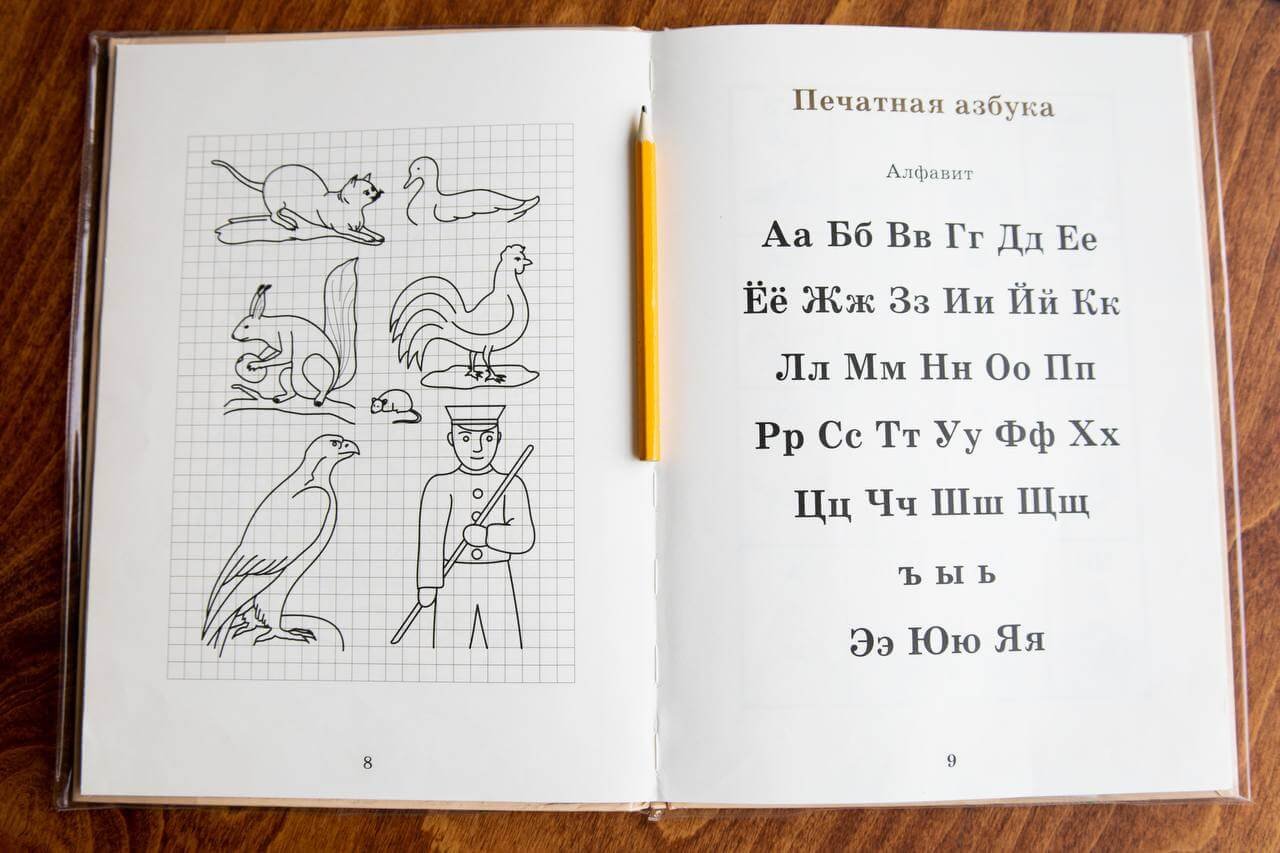 8
Печатная азбука
Алфавит
Аа Бб Вв Гг Дд Ее
Ёё Жж Зз Ии Йй Кк
Лл Мм Нн Оо Пп
Рр Сс Тт Уу Фф Хх
Цц Чч Шш Щщ
ъ ы ь
Ээ Юю Яя
9